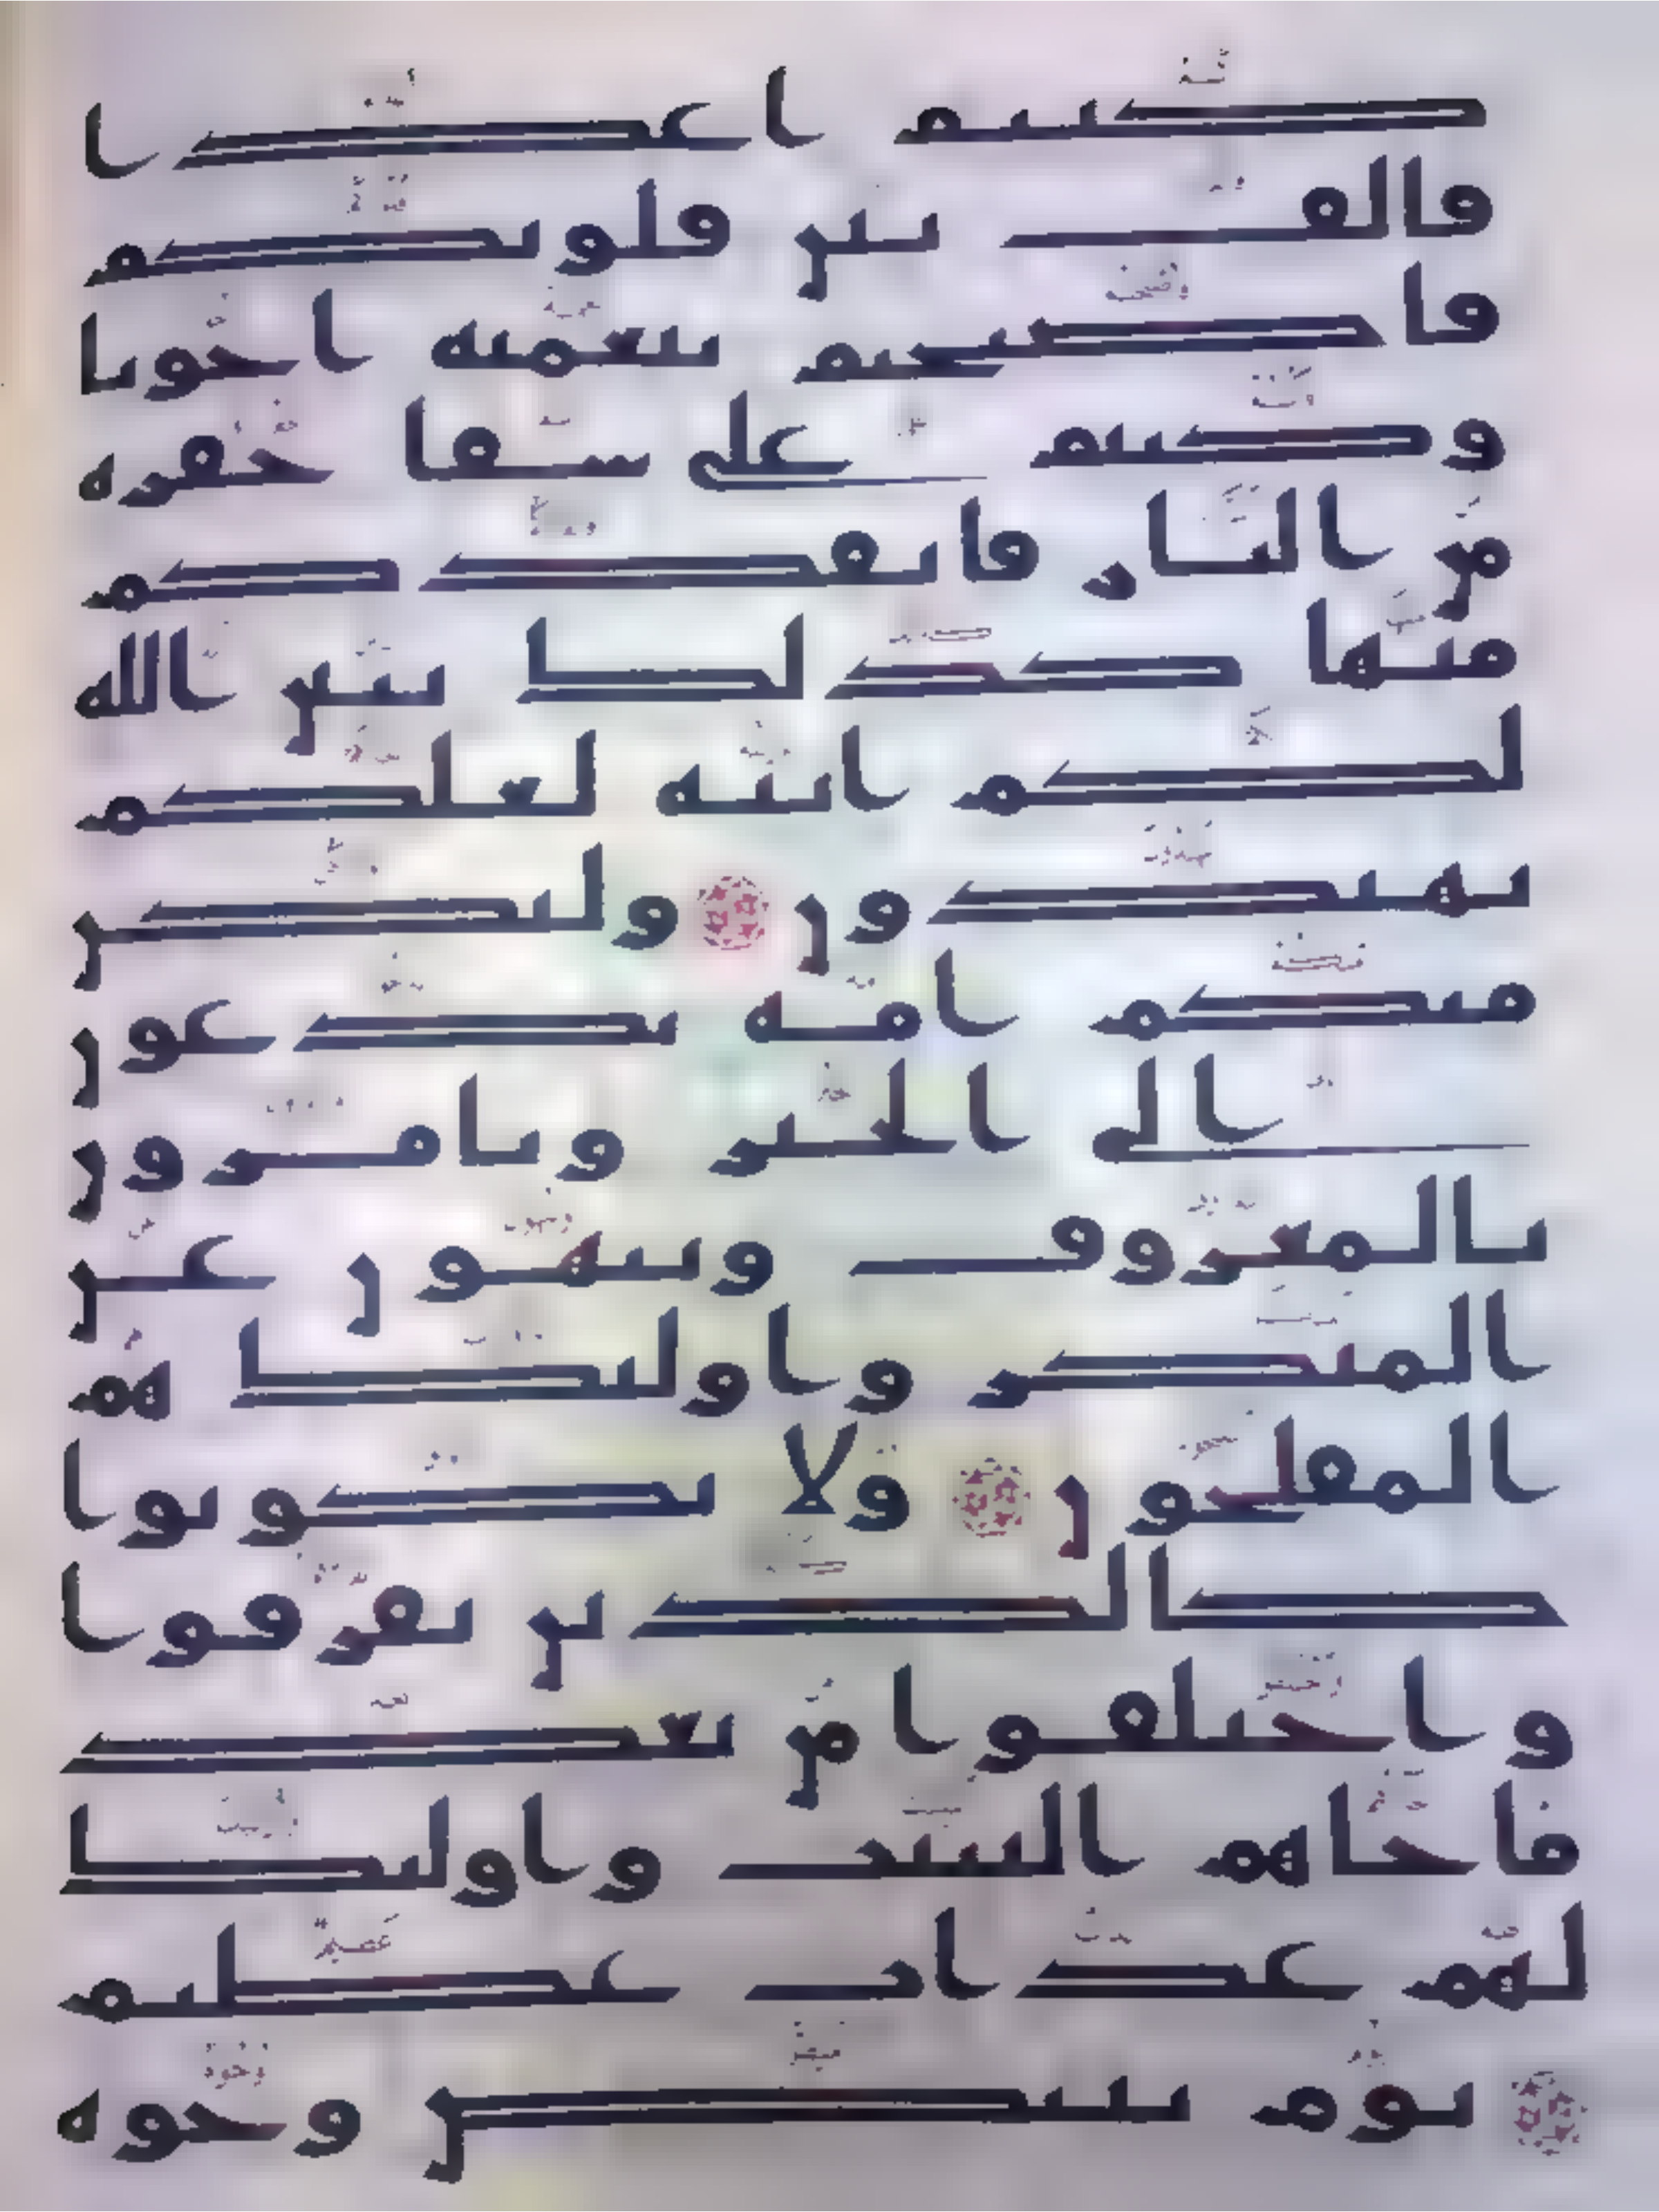 كنتم اعدا
فالف بين قلوبكم
فاصبحتم بنعمته اخونا
وكنتم على شفا حفره
من النار فانقذكم
منها كذلك يبين الله
لكم ايته لعلكم
تهتدون ولتكن
منكم امه يدعون
الى الخير ويامرون
بالمعروف وينهون عن
المنكر واوليك هم
المفلحون ولا تكونوا
كالذين تفرقوا
واختلفوا من بعد
ما جاهم البينت واوليك
لهم عذاب عظيم
يوم تبيض وجوه